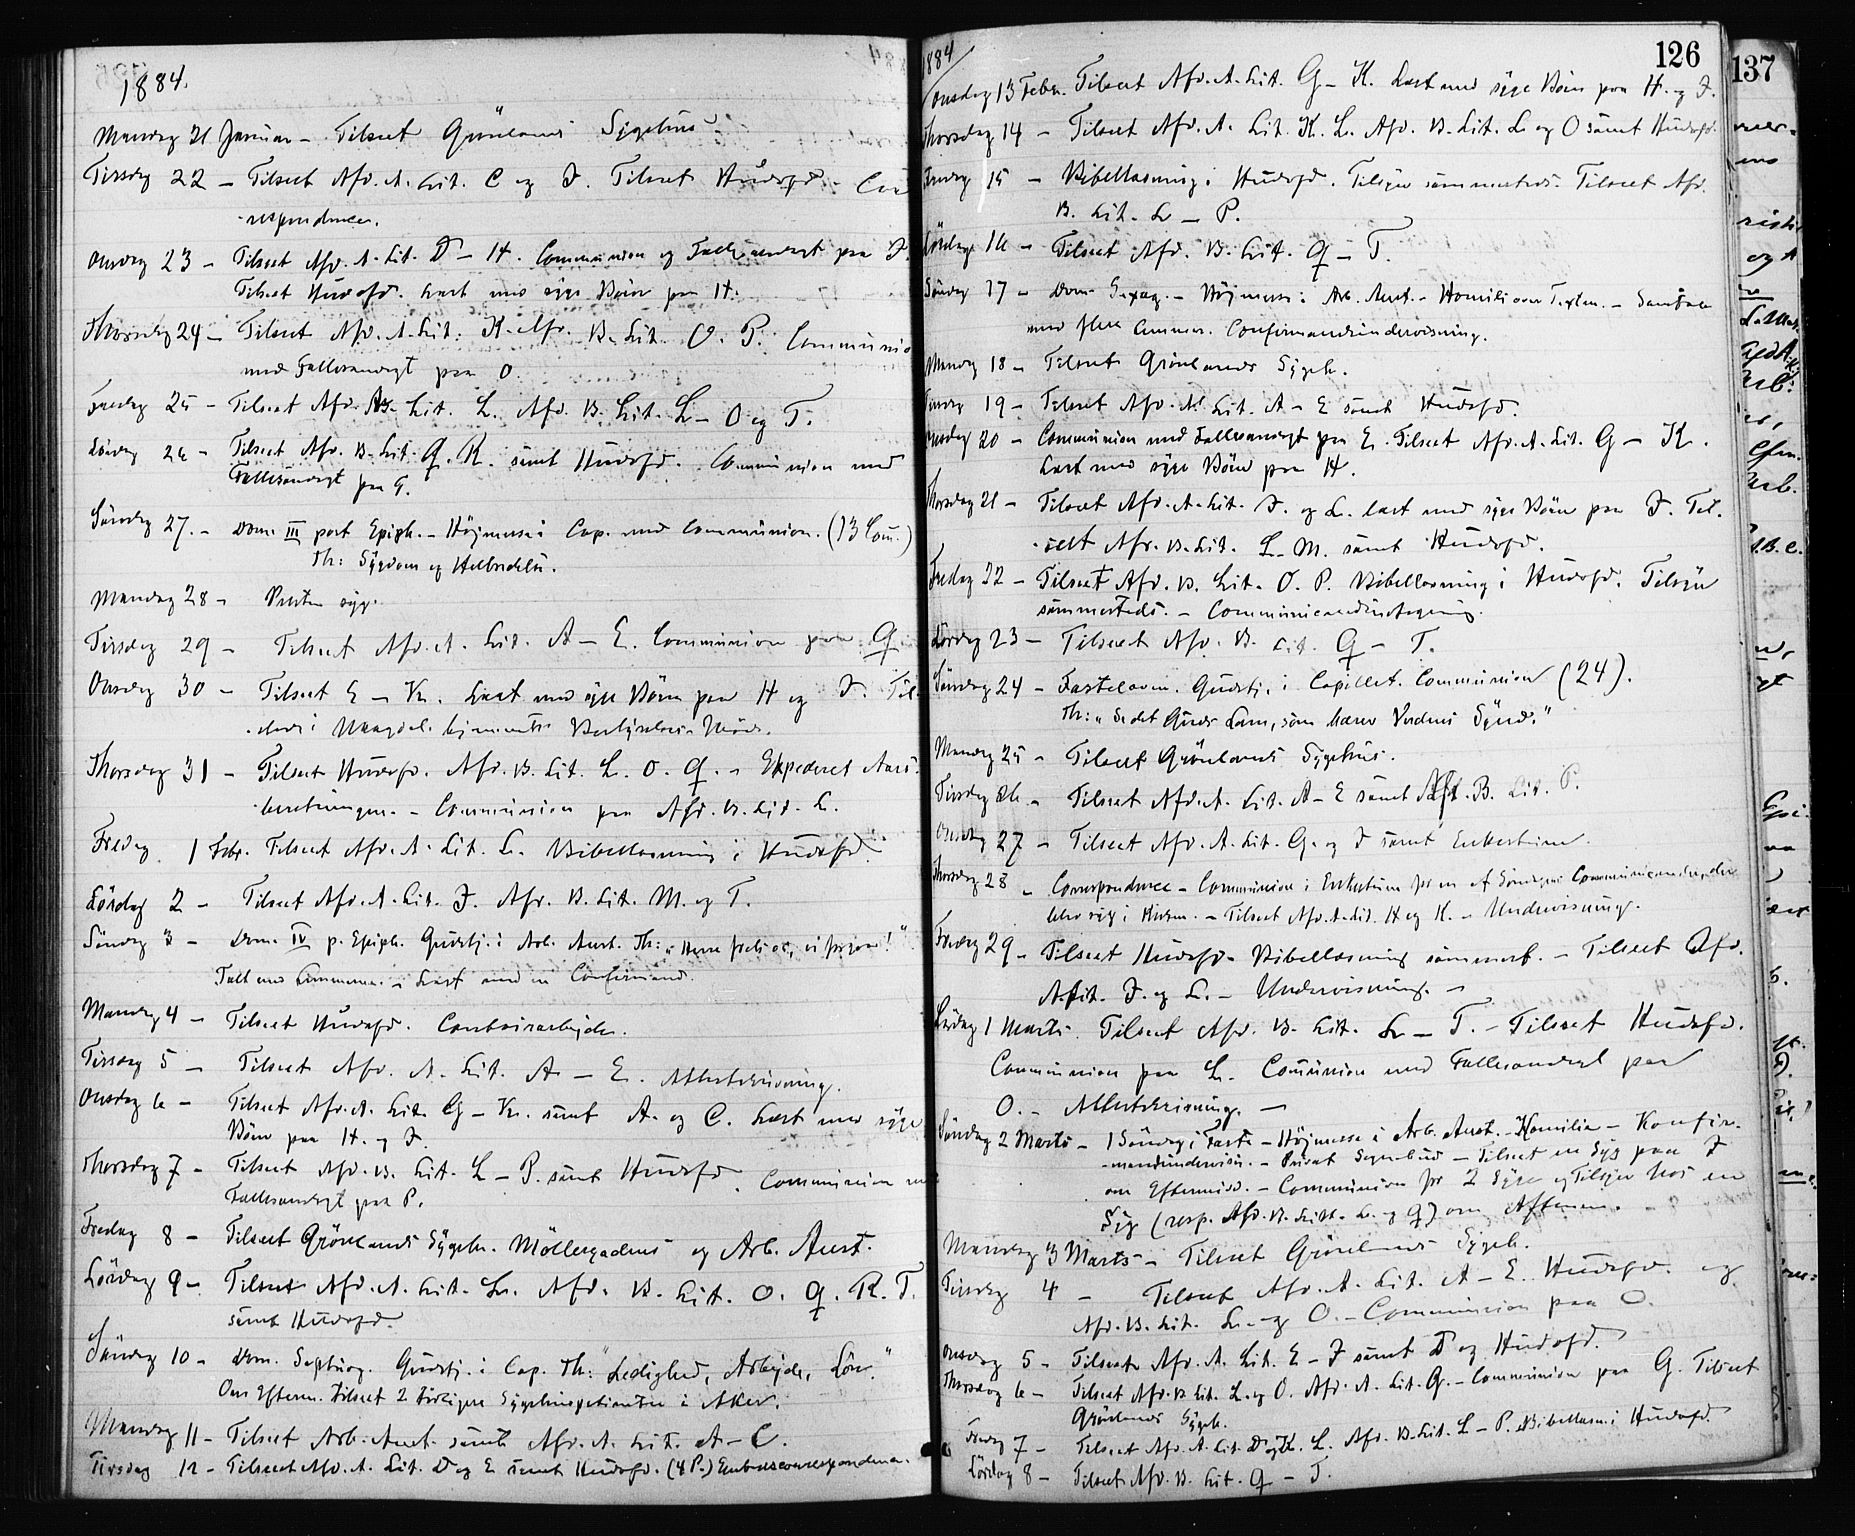 1884.
Mandag 21 Januar – Tilseet Grönlands Sygehus
Tirsdag 22 – Tilseet Afd. A. Lit. C og J. Tilseet Hudafd. – Cor
respondence.
Onsdag 23 – Tilseet Afd. A. Lit. D – H. Communion og Fællesandagt paa J.
Tilseet Hudafd. Læst med syge Börn paa H.
Thorsdag 24 – Tilseet Afd. A. Lit. K. Afd. B. Lit. O. P. Communio
med Fællesandagt paa O.
Fredag 25 – Tilseet Afd. A. Lit. L. Afd. B. Lit. L – O og T.
Lördag 26 – Tilseet Afd. B. Lit. Q. R. samt Hudafd. Communion med
Fællesandagt paa Q.
Söndag 27. – Dom. III post Epiph. – Höjmesse i Cap. med Communion. (13 Com.)
Th: Sygdom og Helbredelse.
Mandag 28 – Presten syg.
Tirsdag 29 – Tilseet Afd. A. Lit. A – E. Communion paa Q
Onsdag 30 – Tilseet E – K. Læst med syge Börn paa H og J. Til
stede i Magdalenahjemmets Bestyrelses-Möde.
Thorsdag 31 – Tilseet Hudafd. Afd. B. Lit. L. O. Q. – Expederet Aars
beretningen. – Communion paa Afd. B. Lit. L.
Fredag 1 Febr. Tilseet Afd. A. Lit. L. Bibellæsning i Hudafd.
Lördag 2 – Tilseet Afd. A. Lit. J. Afd. B. Lit. M. og T.
Söndag 3 – Dom. IV p. Epiph. Gudstj. i Arb. Anst. Th: „Herre frels os, vi forgaa!"
Talt med Lemmerne. – Læst med en Confirmand.
Mandag 4 – Tilseet Hudafd. Contoirarbejde.
Tirsdag 5 – Tilseet Afd. A. Lit. A – E. Attestskrivning.
Onsdag 6 – Tilseet Afd. A. Lit. G – K. samt A. og C. Læst med syge
Börn paa H. og J.
Thorsdag 7 – Tilseet Afd. B. Lit. L – P. samt Hudafd. Communion med
Fællesandagt paa P.
Fredag 8 – Tilseet Grönlands Sygeh. Möllergadens og Arb. Anst.
Lördag 9 – Tilseet Afd. A. Lit. L. Afd. B. Lit. O. Q. R. T.
samt Hudafd.
Söndag 10 – Dom. Septuag. Gudstj. i Cap. Th: "Ledighed, Arbejde, Lön."
Om Efterm. Tilseet 2 tidligere Sygehuspatienter i Aker.
Mandag 11 – Tilseet Arb. Anst. samt Afd. A. Lit. A – C.
Tirsdag 12 – Tilseet Afd. A. Lit. D og E samt Hudafd. (4 P.) Embedscorrespondence.
1884
126
Onsdag 13 Febr. Tilseet Afd. A. Lit. G – K. Læst med syge Börn paa H. og J.
Thorsdag 14 – Tilseet Afd. A. Lit. K. L. Afd. B. Lit. L og O samt Hudafd.
Fredag 15 – Bibellæsning i Hudafd. Tilsyn sammesteds. Tilseet Afd.
B. Lit. L – P.
Lördag 16 – Tilseet Afd. B. Lit. Q – T.
Söndag 17 – Dom. Sexag. – Höjmesse i Arb. Anst. – Homili over Texten. – Samtale
med flere Lemmer. Confirmandundervisning.
Mandag 18 – Tilseet Grönlands Sygeh.
Tirsdag 19 – Tilseet Afd. A. Lit. A – E samt Hudafd.
Onsdag 20 – Communion med Fællesandagt paa E. Tilseet Afd. A. Lit. G – K.
Læst med syge Börn paa H.
Thorsdag 21 – Tilseet Afd. A. Lit. J. og L. læst med syge Börn paa J. Til
seet Afd. B. Lit. L – M. samt Hudafd.
Fredag 22 – Tilseet Afd. B. Lit. O. P. Bibellæsning i Hudafd. Tilsyn
sammesteds. – Communicantmodtagning.
Lördag 23 – Tilseet Afd. B. Lit. Q – T.
Söndag 24 – Fastelavn. Gudstj. i Capellet. Communion (24).
Th: „Se det Guds Lam, som bærer Verdens Synd."
Mandag 25 – Tilseet Grönlands Sygehus.
Tirsdag 26 – Tilseet Afd. A. Lit. A – E samt Afd. B. Lit. P.
Onsdag 27 – Tilseet Afd. A. Lit. G. og J samt Enkestuen.
Thorsdag 28 – Correspondence – Communion i Enkestuen for en af Söndagens Communicanter, der
blev syg i Kirken. – Tilseet Afd. A. Lit. H og K. – Undervisning.
Fredag 29 – Tilseet Hudafd. Bibellæsning sammest. – Tilseet Afd.
A. Lit. J. og L. – Undervisning. –
Lördag 1 Marts. Tilseet Afd. B. Lit. L – T. – Tilseet Hudafd.
Communion paa L. Communion med Fællesandagt paa
O. – Attestskrivning. –
Söndag 2 Marts – 1 Söndag i Faste – Höjmesse i Arb. Anst. – Homilie – Konfir-
mandundervisn. – Privat Sognebud – Tilseet en Syg paa J
om Eftermidd. – Communion for 2 Syge og Tilsyn hos en
Syg (resp. Afd. B. Litt. L. og Q) om Aftenen.
Mandag 3 Marts – Tilseet Grönlands Sygeh.
Tirsdag 4 – Tilseet Afd. A. Lit. A – E. Hudafd. og
Afd. B. Lit. L. og O. – Communion paa O.
Onsdag 5 – Tilseet Afd. A. Lit. E – J samt D og Hudafd.
Thorsdag 6 – Tilseet Afd. B Lit. L. og O. Afd. A. Lit. G. – Communion paa G. Tilseet
Grönlands Sygeh.
Fredag 7 – Tilseet Afd. A. Lit. D og K. L. Afd. B. Lit. L – P. Bibellæsn. i Hudafd.
Lördag 8 – Tilseet Afd. B. Lit. Q – T.
137